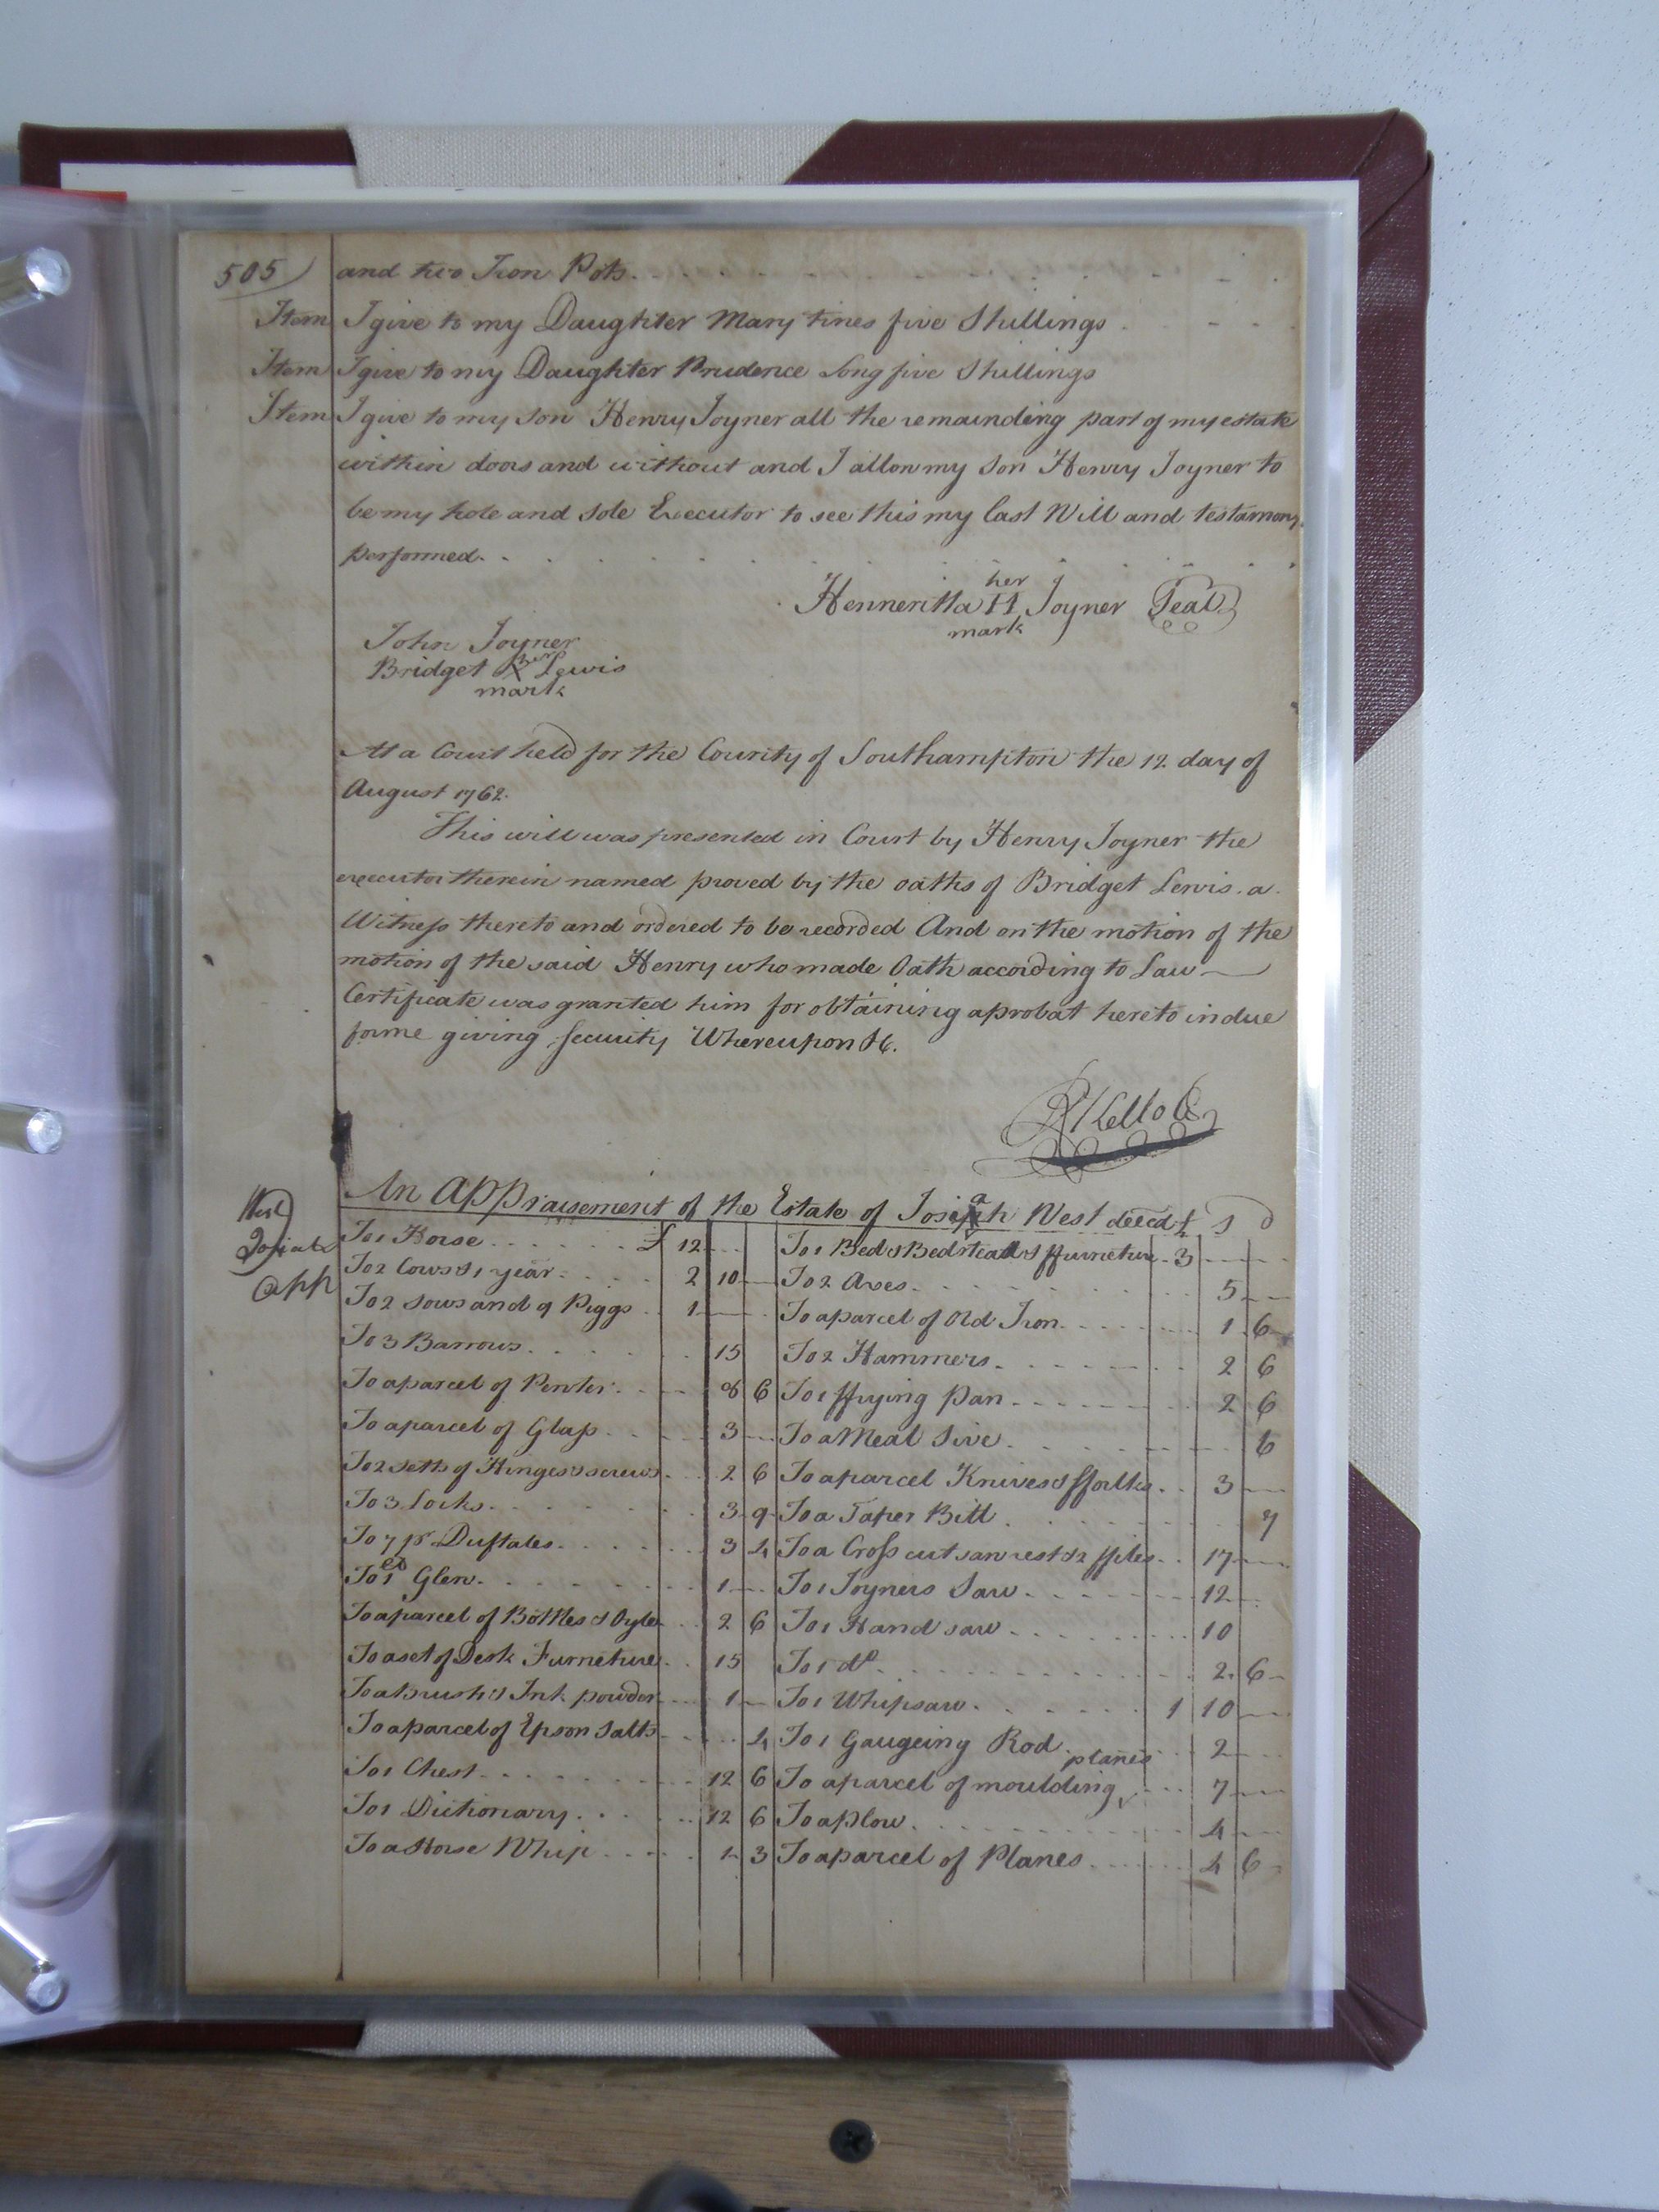 505 and two Iron Pots
Item I give to my Daughter Mary tines five Shillings
Item I give to my Daughter Prudence Long five Shillings
Item I give to my Son Henry Joyner all the remainding part of my estate
within doors and without and I allow my Son Henry Joyner to
be my hole and sole Executor to see this my last Will and testamony
performed.
Henneritta her H mark Joyner Seal
John Joyner
Bridget her X mark Lewis
At a Court held for the County of Southampton the 12 day of
August 1762.
This will was presented in Court by Henry Joyner the
executor therein named proved by the oaths of Bridget Lewis a
Witness thereto and ordered to be recorded And on the motion of the
motion of the said Henry who made Oath according to Law
Certificate was granted him for obtaining a probat hereto in due
forme giving security Whereupon &c.
R Kello C
West
Josiah
app
An Appraisement of the Estate of Josiah West deced £ s d
To 1 Horse £ 12
To 2 Cows & 1 year 2 10
To 2 sows and 9 Piggs 1
To 3 Barrows 15
To a parcel of Pewter 8 6
To a parcel of Glass 3
To 2 setts of Hinges & screws 2 6
To 3 Locks 3 9
To 7 ps Duftales 3 4
To 1 Glew 1
To a parcel of Bottles & Oyle 2 6
To a set of Desk Furneture 15
To a Brush & Ink powder 1
To a parcel of Epson Salts 4
To 1 Chest 12 6
To 1 Dictionary 12 6
To a Horse Whip 1 3
To 1 Bed & Bedstead & ffurneture 3
To 2 Axes 5
To a parcel of Old Iron 1 6
To 2 Hammers 2 6
To 1 ffrying pan 2 6
To a Meal Sive 6
To a parcel Knives & fforks 3
To a Taper Bitt 7
To a Cross cut saw rest & 2 ffiles 17
To 1 Joyners Saw 12
To 1 Hand saw 10
To 1 do 2 6
To 1 Whipsaw 1 10
To 1 Gaugeing Rod 2
To a parcel of moulding planes 7
To a Plow 4
To a parcel of Planes 4 6